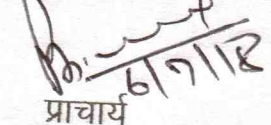 6/7/18
प्राचार्य